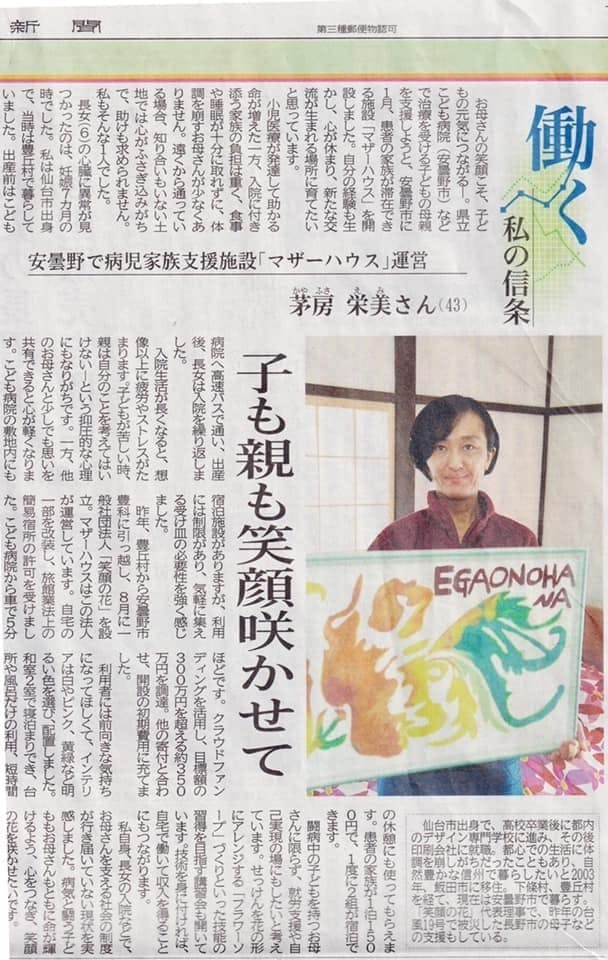 新聞
第三種郵便物認可
働く
私の信条
安曇野で病児家族支援施設「マザーハウス」運営
かや ふさ え み
茅房 栄美さん(43)
子も親も笑顔咲かせて
お母さんの笑顔こそ、子ど
もの元気につながる―。県立
こども病院（安曇野市）など
で治療を受ける子どもの母親
を支援しようと、安曇野市に
1月、患者の家族が滞在でき
る施設「マザーハウス」を開
設しました。自分の経験も生
かし、心が休まり、新たな交
流が生まれる場所に育てたい
と思っています。
小児医療が発達して助かる
命が増えた一方、入院に付き
添う家族の負担は重く、食事
や睡眠が十分に取れずに、体
調を崩すお母さんが少なくあ
りません。遠くから通ってい
る場合、知り合いもいない土
地では心がふさぎ込みがち
で、助けも求められません。
私もそんな1人でした。
長女(6)の心臓に異常が見
つかったのは、妊娠7カ月の
時でした。私は仙台市出身
で、当時は豊丘村で暮らして
いました。出産前はこども
病院へ高速バスで通い、出産
後、長女は入院を繰り返しま
した。
入院生活が長くなると、想
像以上に疲労やストレスがた
まります。子どもが苦しい時、
親は自分のことを考えてはい
けない―という抑圧的な心理
にもなりがちです。一方、他
のお母さんと少しでも思いを
共有できると心が軽くなりま
す。こども病院の敷地内にも
宿泊施設がありますが、利用
には制限があり、気軽に集え
る受け皿の必要性を強く感じ
ました。
昨年、豊丘村から安曇野市
豊科に引っ越し、8月に一
般社団法人「笑顔の花」を設
立。マザーハウスはこの法人
が運営しています。自宅の
一部を改装し、旅館業法上の
簡易宿所の許可を受けまし
た。こども病院から車で5分
ほどです。クラウドファン
ディングを活用し、目標額の
300万円を超える約350
万円を調達。他の寄付と合わ
せ、開設の初期費用に充てま
した。
利用者には前向きな気持ち
になってほしくて、インテリ
アは白やピンク、黄緑など明
るい色を選び、配置しました。
和室2室で寝泊まりでき、台
所や風呂だけの利用、短時間
の休憩にも使ってもらえま
す。患者の家族が1泊150
0円で、1度に2組が宿泊で
きます。
闘病中の子どもを持つお母
さんに限らず、就労支援や自
己実現の場にもしたいと考え
ています。せっけんを花の形
にアレンジする「フラワーソ
ープ」づくりといった技能の
習得を目指す講習会も開いて
います。技術を身に付ければ、
自宅で働いて収入を得ること
にもつながります。
私自身、長女の入院などで、
お母さんを支える社会の制度
が行き届いていない現状を実
感しました。病気と闘う子ど
ももお母さんもともに命が輝
けるよう、心をつなぎ、笑顔
の花を咲かせたいです。
EGAONOHA
NA
仙台市出身で、高校卒業後に都内
のデザイン専門学校に進み、その後
印刷会社に就職。都心での生活に体
調を崩しがちだったこともあり、自
然豊かな信州で暮らしたいと2003
年、飯田市に移住。下條村、豊丘村
を経て、現在は安曇野市で暮らす。
「笑顔の花」代表理事で、昨年の台
風19号で被災した長野市の母子など
の支援もしている。